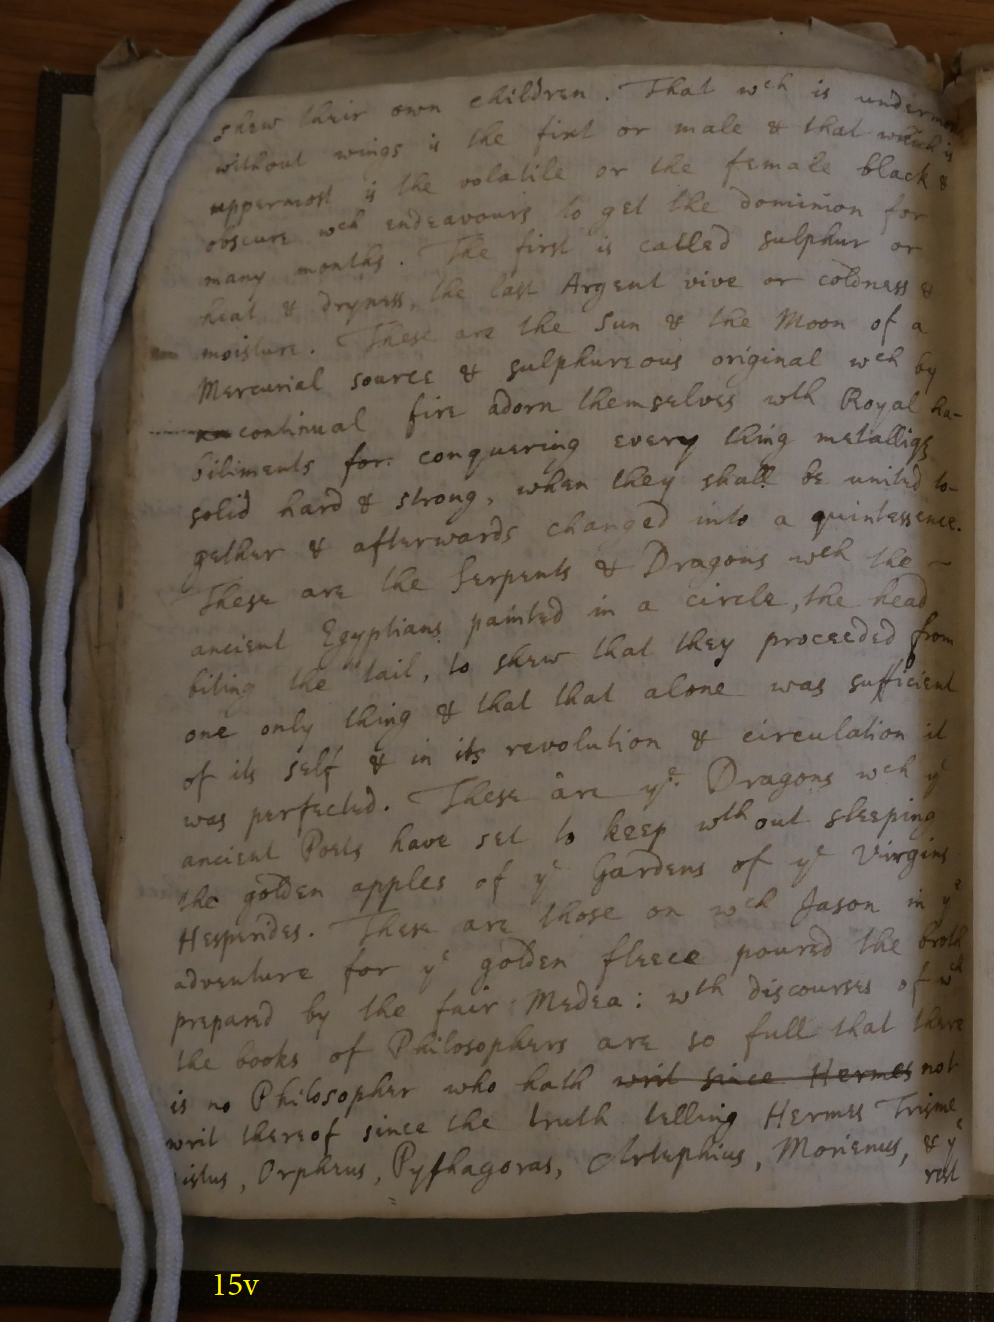 shew their own children. That wch is undermost
without wings is the fixt or male & that which is
uppermost is the volatile or the female black &
obscure wch endeavours to get the dominion for
many months. The first is called sulphur or
heat & dryness, the last Argent vive or coldness &
moisture. These are the Sun & the Moon of a
Mercurial source & sulphureous original wch by
continual fire adorn themselves wth Royal ha-
biliments for conquering every thing metallique
solid hard & strong, when they shall be united to-
gether & afterwards changed into a quintessence.
These are the Serpents & Dragons wch the ~
ancient Egyptians painted in a circle, the head
biting the tail, to shew that they proceeded from
one only thing & that that alone was sufficient
of its self & in its revolution & circulation it
was perfected. These are ye Dragons wch ye
ancient Poets have set to keep wthout sleeping
the golden apples of ye Gardens of ye Virgins
Hesperides. These are those on wch Jason in ye
adventure for ye golden fleece poured the broth
prepared by the fair Medea: wth discourses of wch
the books of Philosophers are so full that there
is no Philosopher who hath writ since Hermes not
writ thereof since the truth telling Hermes Trisme
istus, Orpheus, Pythagoras, Artephius, Morienus, & ye
rest
15v